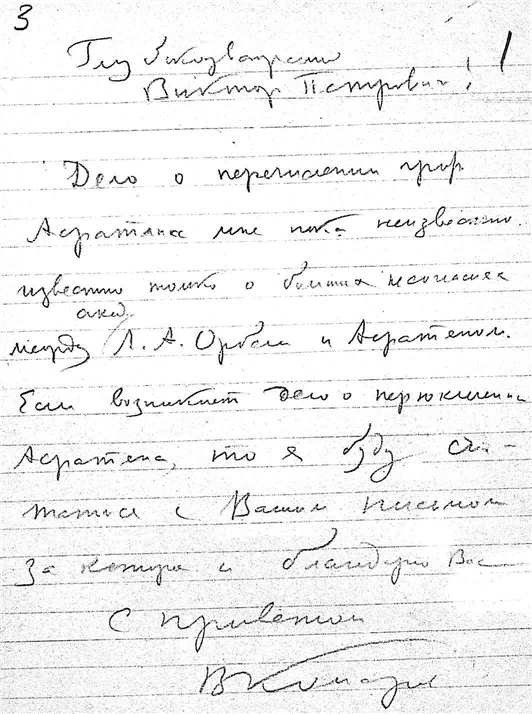 3
1
Глубокоуважаемый
Виктор Петрович!
Дело о перечислении проф.
Асратяна мне пока неизвестно.
известно только о больших несогласиях
акад.
между Л. А. Орбели и Асратяном.
Если возникнет дело о перечислении
Асратяна, то я буду счи-
таться с Вашим письмом
За которое и благодарю Вас
С приветом
В Комаров